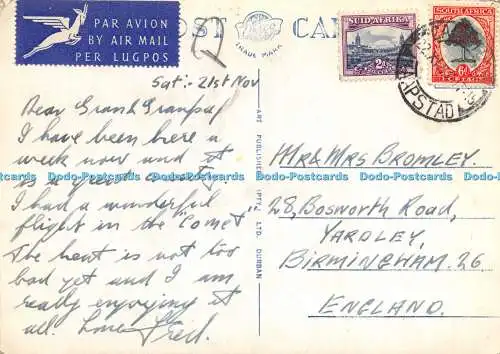 PAR AVION
BY AIR MAIL
PER LUGPOS
POST CARD
TRADE MARK
SUID-AFRIKA
2D
SOUTH AFRICA
6D
Sat:- 21st Nov
Dear Gran & Granpa,
I have been here a
week now and it
is a great country
I had a wonderful
flight in the "Comet"
The heat is not too
bad yet and I am
really enjoying it
all. Love Fred.
ART PUBLISHERS (PTY.) LTD. DURBAN
Mr & Mrs BROMLEY.
28, Bosworth Road,
YARDLEY,
BIRMINGHAM. 26
ENGLAND.
Dodo-Postcards Dodo-Postcards Dodo-Postcards Dodo-Postcards Dodo-Postcards
Dodo-Postcards Dodo-Postcards Dodo-Postcards Dodo-Postcards Dodo-Postcards